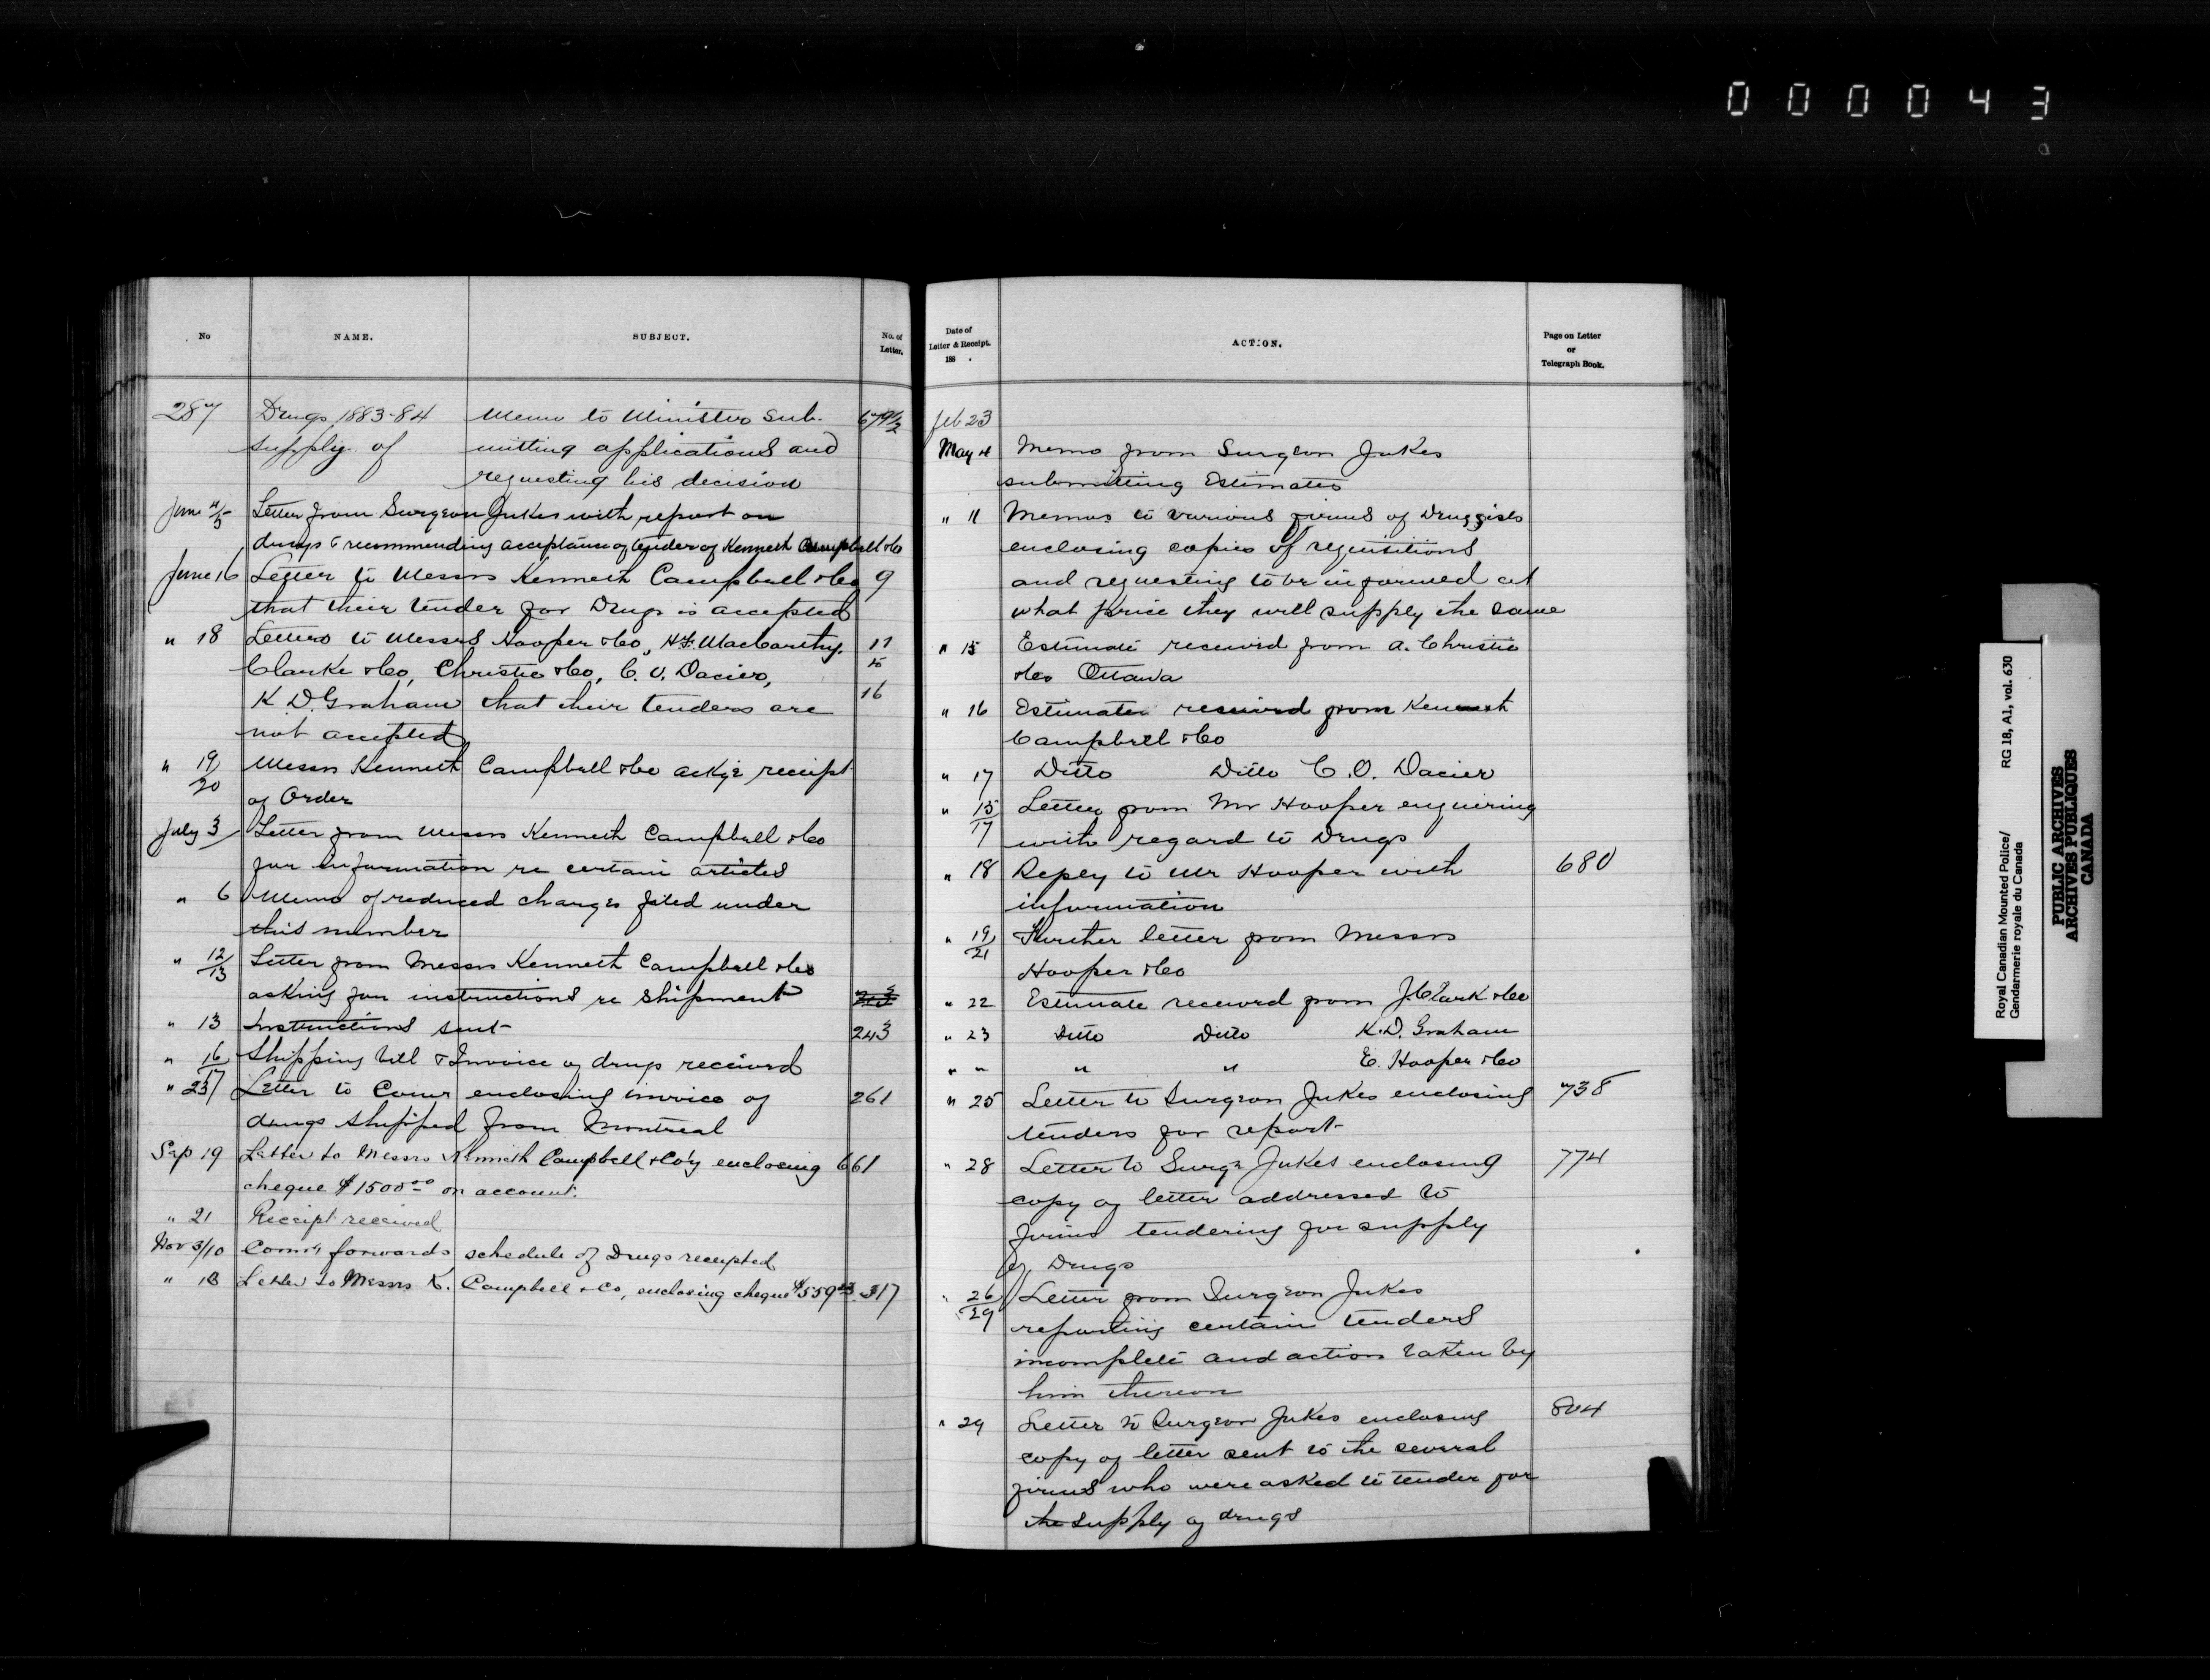 000043
No NAME. SUBJECT. No. of Letter.
287 Drugs 1883-84 Memo to Minister sub- 679½
supply of mitting applications and
requesting his decision
June 4/5 Letter from Surgeon Jukes with report on
drugs & recommending acceptance of tender of Kenneth Campbell &Co
June 16 Letter to Messrs Kenneth Campbell &Co 9
that their tender for Drugs is accepted
" 18 Letters to Messrs Hooper &Co, H.F. MacCarthy, 11
Clarke &Co, Christie &Co, C.O. Dacier, to
K D. Graham that their tenders are 16
not accepted
" 19/20 Messrs Kenneth Campbell &Co ackg receipt
of Order
July 3 Letter from Messrs Kenneth Campbell &Co
for information re certain articles
" 6 Memo of reduced charges filed under
this number
" 12/13 Letter from Messrs Kenneth Campbell &Co
asking for instructions re shipment
" 13 Instructions sent 243
" 16/17 Shipping bill & Invoice of drugs received
" 23 Letter to Comr enclosing invoice of 261
drugs shipped from Montreal
Sep 19 Letter to Messrs Kenneth Campbell &Co'y enclosing 661
cheque $1500.00 on account.
" 21 Receipt received
Nov 3/10 Comr forwards schedule of Drugs receipted
" 18 Letter to Messrs K. Campbell & Co, enclosing cheque $559 317
Date of
Letter & Receipt.
188 .
ACTION.
Page on Letter
or
Telegraph Book.
Feb 23
May 4 Memo from Surgeon Jukes
submitting Estimates
" 11 Memos to various firms of Druggists
enclosing copies of requisitions
and requesting to be informed at
what price they will supply the same
" 15 Estimate received from A. Christie
&Co Ottawa
" 16 Estimate received from Kenneth
Campbell &Co
" 17 Ditto Ditto C.O. Dacier
" 15/17 Letter from Mr Hooper enquiring
with regard to Drugs
" 18 Reply to Mr Hooper with 680
information
" 19/21 Further letter from Messrs
Hooper &Co
" 22 Estimate received from J. Clark &Co
" 23 Ditto Ditto K.D. Graham
" " " " E. Hooper &Co
" 25 Letter to Surgeon Jukes enclosing 738
tenders for report
" 28 Letter to Surgn Jukes enclosing 774
copy of letter addressed to
firms tendering for supply
of Drugs
" 26/29 Letter from Surgeon Jukes
reporting certain tenders
incomplete and action taken by
him thereon
" 29 Letter to Surgeon Jukes enclosing 804
copy of letter sent to the several
firms who were asked to tender for
the supply of drugs
Royal Canadian Mounted Police/ RG 18, A1, vol. 630
Gendarmerie royale du Canada
PUBLIC ARCHIVES
ARCHIVES PUBLIQUES
CANADA